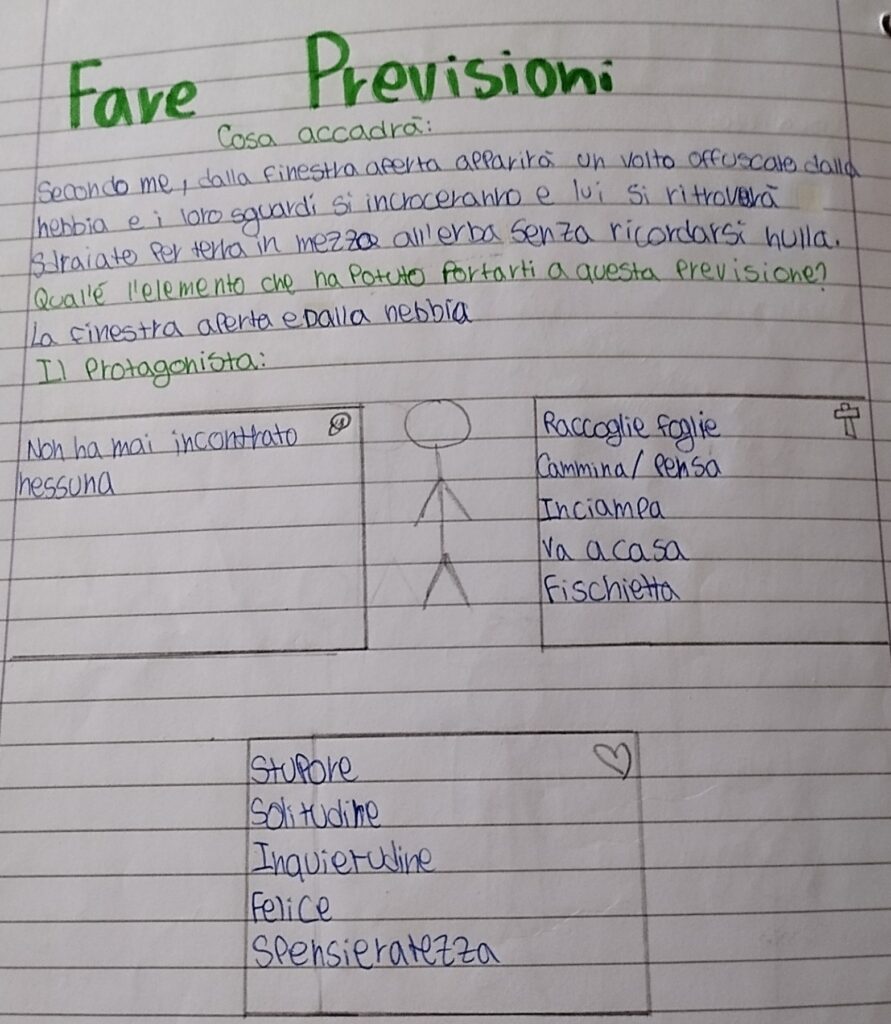 Fare Previsioni
Cosa accadrà:
Secondo me, dalla finestra aperta apparirà un volto offuscato dalla
nebbia e i loro sguardi si incroceranno e lui si ritroverà
sdraiato per terra in mezzo all'erba senza ricordarsi nulla.
Qual'è l'elemento che ha potuto portarti a questa previsione?
La finestra aperta e dalla nebbia
Il Protagonista:
Non ha mai incontrato
nessuna
Raccoglie foglie
Cammina/ pensa
Inciampa
Va a casa
Fischietta
Stupore
Solitudine
Inquietudine
Felice
Spensieratezza